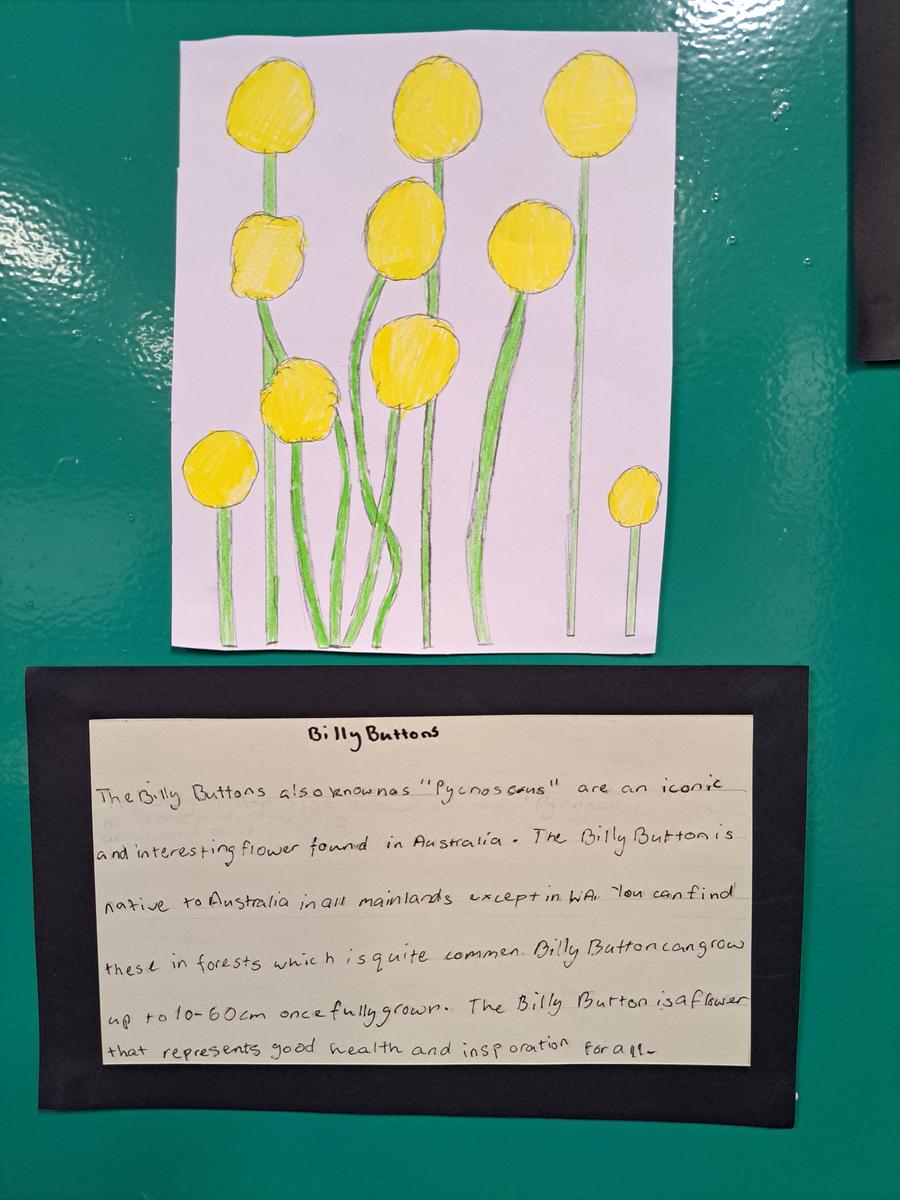 Billy Buttons
The Billy Buttons also known as "Pycnosous" are an iconic
and interesting flower found in Australia. The Billy Button is
native to Australia in all mainlands except in WA. You can find
these in forests which is quite commen. Billy Button can grow
up to 10-60cm once fully grown. The Billy Button is a flower
that represents good health and insporation for all.